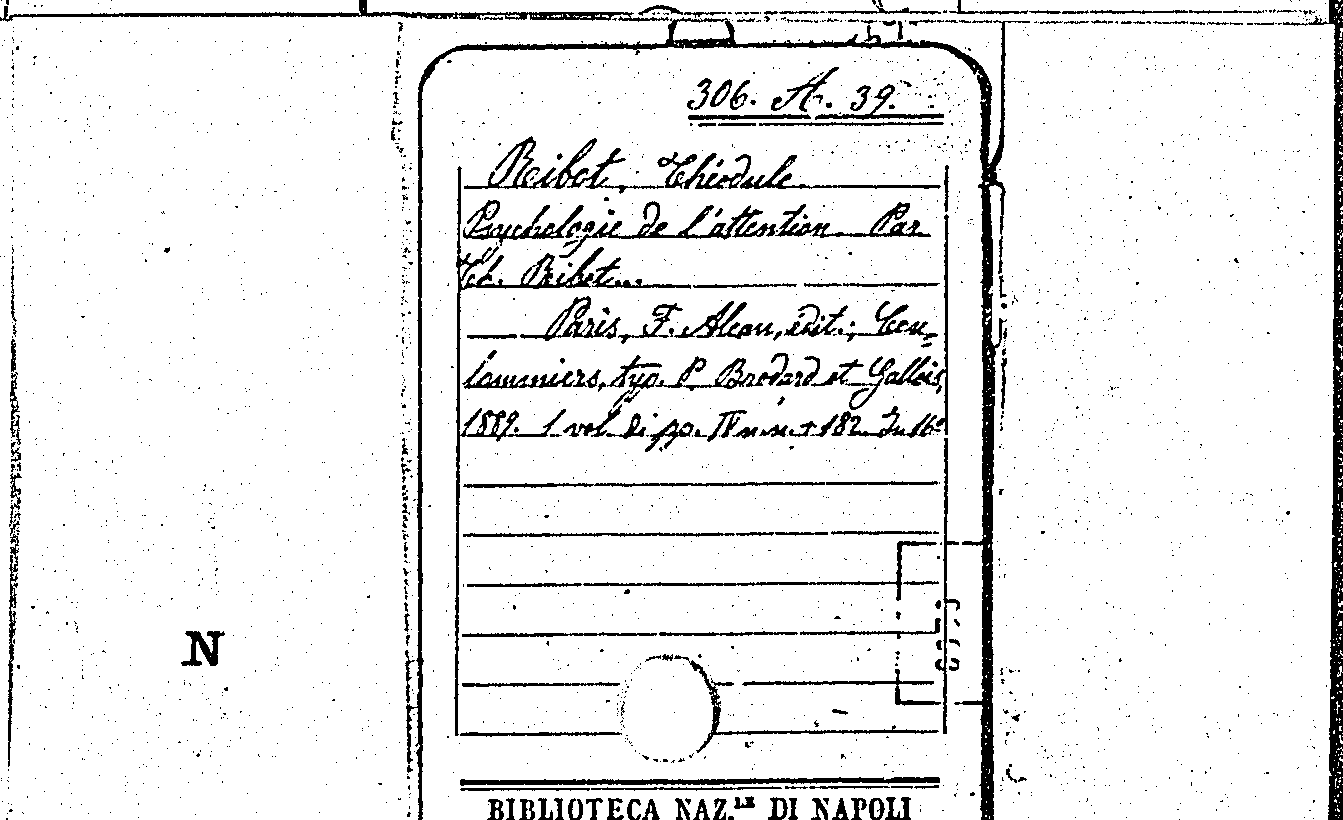 306. A. 39.
Ribot, Théodule.
Psychologie de l'attention. Par
Th. Ribot...
Paris, F. Alcan, édit.; Cou-
lommiers, typ. P. Brodard et Gallois,
1889. 1 vol. di pp. IV n.n. + 182. In 16º
N
BIBLIOTECA NAZ.LE DI NAPOLI